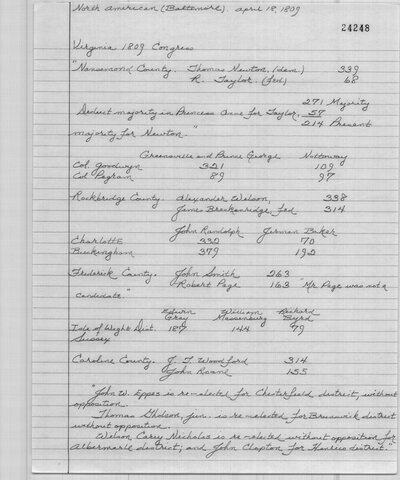 North American (Baltimore). April 18, 1809
24248
Virginia 1809 Congress
"Nansemond County. Thomas Newton, (dem.) 339
R. Taylor. (fed) 68
271 Majority
Deduct majority in Princess Anne for Taylor, 57
214 Present
majority for Newton."
Greensville and Prince George Nottoway
Col. Goodwyn 321 109
Col Pegram 89 97
Rockbridge County. Alexander Welson, 338
James Breckenridge, Fed 314
John Randolph Jerman Baker
Charlotte 332 70
Buckingham 379 192
Frederick County. John Smith 263
Robert Page 163 "Mr Page was not a
candidate."
Edwin William Richard
Gray Massenburg Byrd
Isle of Wight Dist. 187 144 79
Sussex
Caroline County. J. T. Woodford 314
John Roane 155
"John W. Eppes is re-elected for Chesterfield district, without
opposition.
Thomas Gholson, jun. is re-elected for Brunswick district
without opposition.
Welson Carey Nicholas is re-elected without opposition for
Albermarle district; and John Clopton for Henrico district."